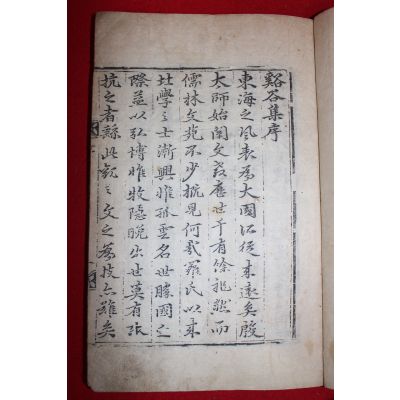 谿谷集序
東海之風表爲大國所從來遠矣殷
太師始闡文教歷世千有餘祀然而
儒林文苑不少概見何哉羅氏以來
北學之士漸興惟孤雲名世勝國之
際益以弘博惟牧隱晚出世莫有張
抗之者繇此觀之文之爲技亦難矣